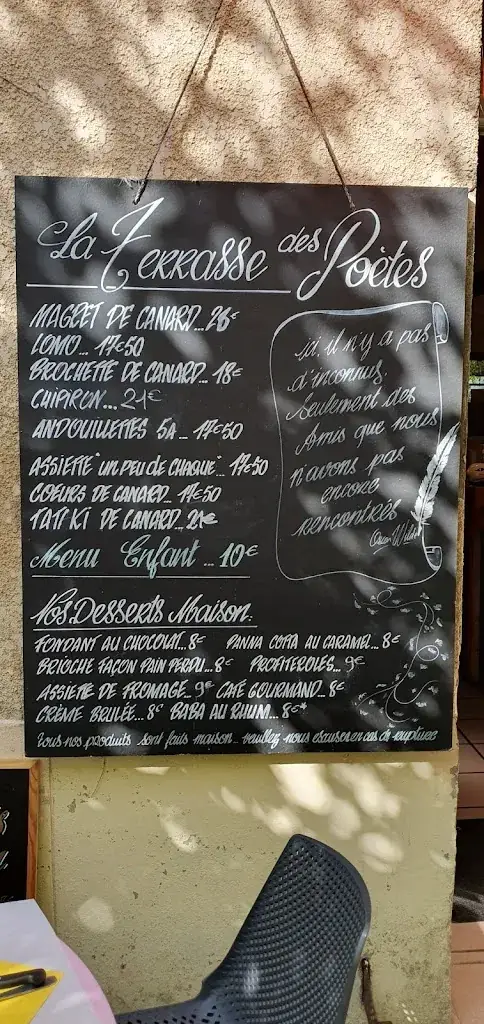 La Terrasse des Poètes
MAGRET DE CANARD... 26€
LOMO... 17€50
BROCHETTE DE CANARD... 18€
CHIPIRON... 21€
ANDOUILLETTES 5A... 17€50
ASSIETTE "UN PEU DE CHAQUE"... 17€50
COEURS DE CANARD... 17€50
TATAKI DE CANARD... 21€
Menu Enfant... 10€
ici, il n'y a pas
d'inconnus,
seulement des
Amis que nous
n'avons pas
encore
rencontrés
Oscar Wilde
Nos Desserts Maison.
FONDANT AU CHOCOLAT... 8€ PANNA COTTA AU CARAMEL... 8€
BRIOCHE FAÇON PAIN PERDU... 8€ PROFITEROLES... 9€
ASSIETTE DE FROMAGE... 9€ CAFÉ GOURMAND... 8€
CRÈME BRULÉE... 8€ BABA AU RHUM... 8€*
Tous nos produits sont faits maison... veuillez nous excuser en cas de rupture